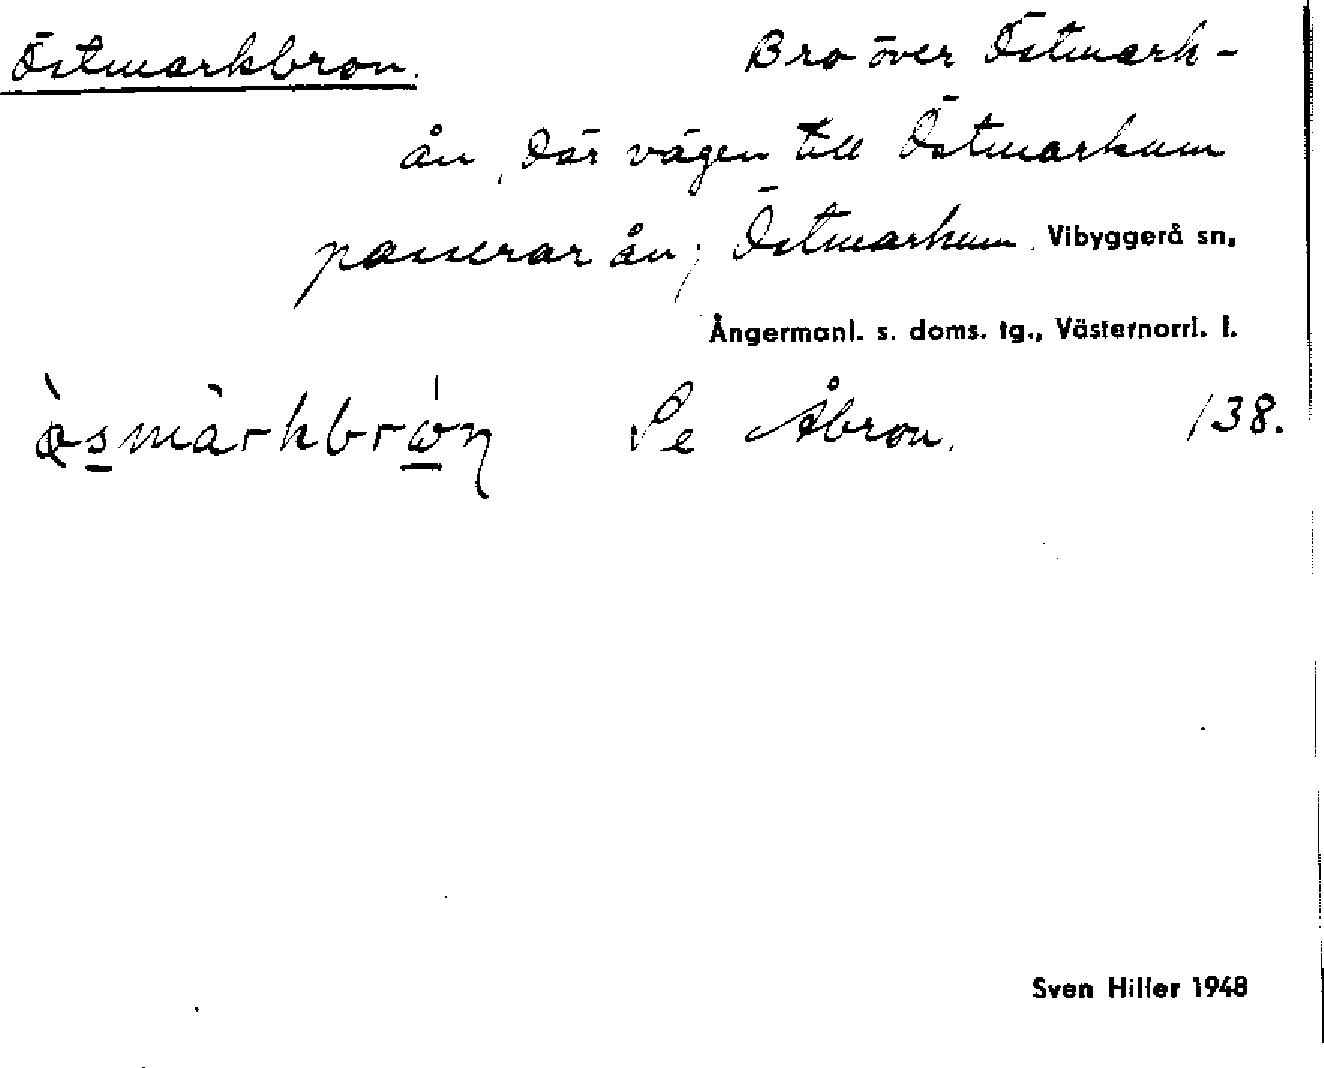 Östmarkbron. Bro över Östmark-
ån, där vägen till Östmarkum
passerar ån; Östmarkum. Vibyggerå sn,
Ångermanl. s. doms. tg., Västernorrl. l.
Se Åbron. 138.
Sven Hiller 1948